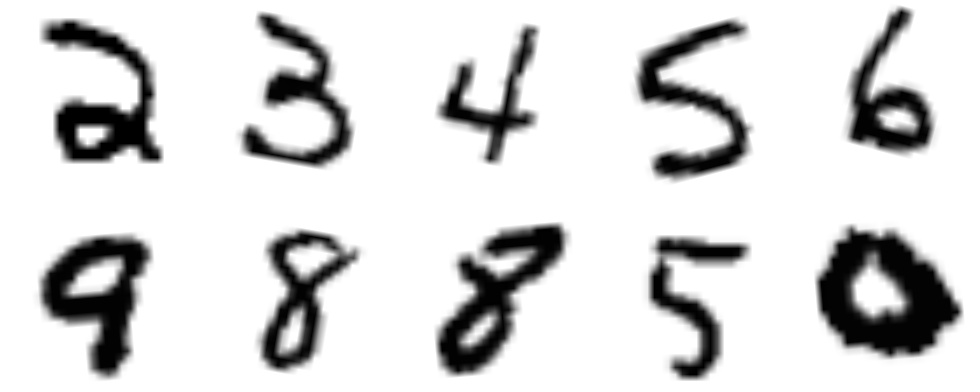 2 3 4 5 6
9 8 8 5 0